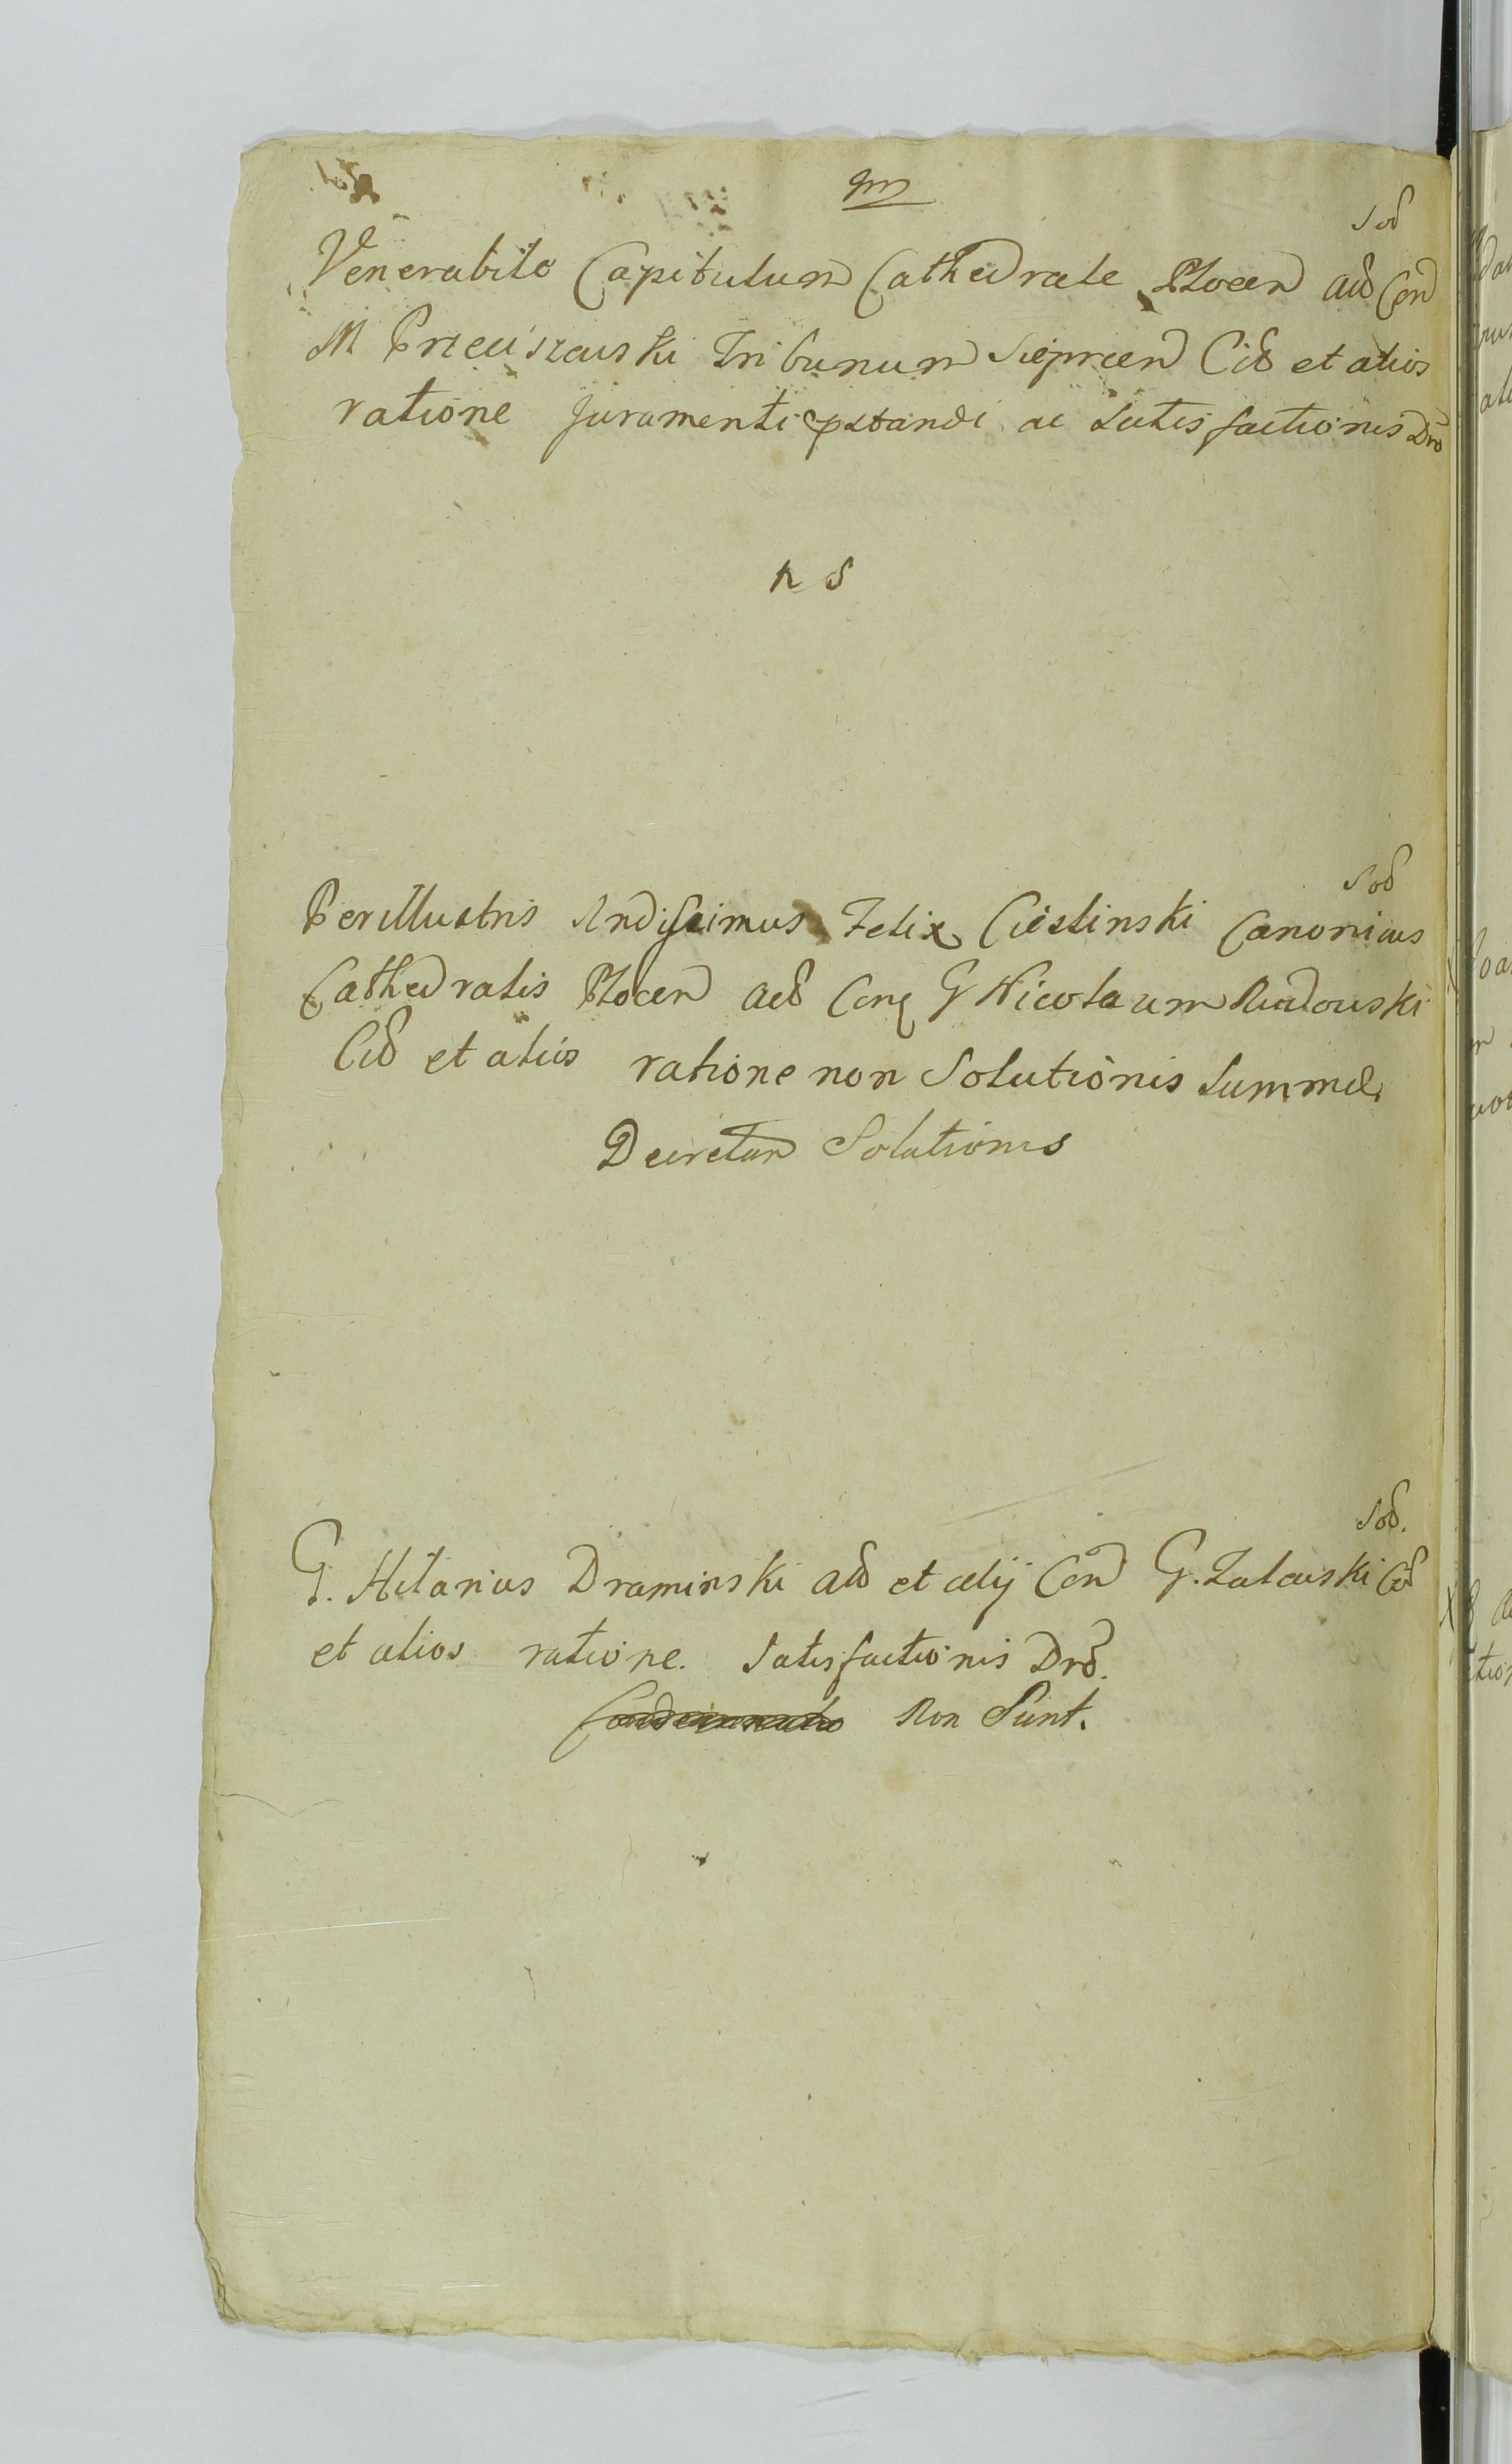 m
Sod
Venerabile Capitulum Cathedrale Plocen act Con
M Przeciszewski Tribunum Sieprcen Cit et alios
ratione Juramenti pstandi ac Satisfactionis Dto
n s
Sod
Perillustris Rndissimus Felix Cieslinski Canonicus
Cathedralis Plocen act Con G Nicolaum Rudowski
Cit et alios ratione non Solutionis Summae
Decretum Solutionis
Sod.
G. Hilarius Draminski act et alij Con G. Zaleuski Cit
et alios ratione. Satisfactionis Dto.
Condemnatio Non Sunt.